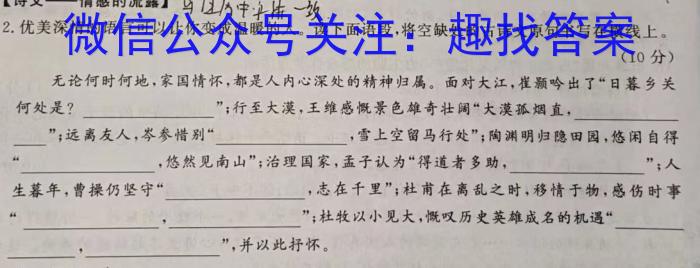 【诗文——情感的流露】
2. 优美深 的语言可以让你变成温暖的人。读下面语段,将空缺处的古诗文原句书写在横线上。
微信公众号关注:趣找答案
(10 分)
无论何时何地,家国情怀,都是人内心深处的精神归属。面对大江,崔颢吟出了“日暮乡关
何处是? ”;行至大漠,王维感慨景色雄奇壮阔“大漠孤烟直,
”;远离友人,岑参惜别“ ,雪上空留马行处”;陶渊明归隐田园,悠闲自得
“ ,悠然见南山”;治理国家,孟子认为“得道者多助, ”;人
生暮年,曹操仍坚守“ ,志在千里”;杜甫在离乱之时,移情于物,感伤时事
“ , ”;杜牧以小见大,慨叹历史英雄成名的机遇“
, ”,并以此抒怀。